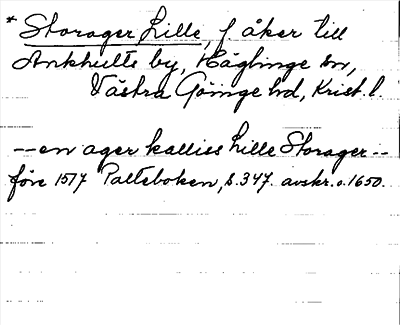 * Storager Lille, f. åker till
Ankhults by, Häglinge sn,
Västra Göinge hd, Krist. l.
-- en ager kalliss Lille Storager --
före 1517 Palteboken, s. 347. avskr. o. 1650.